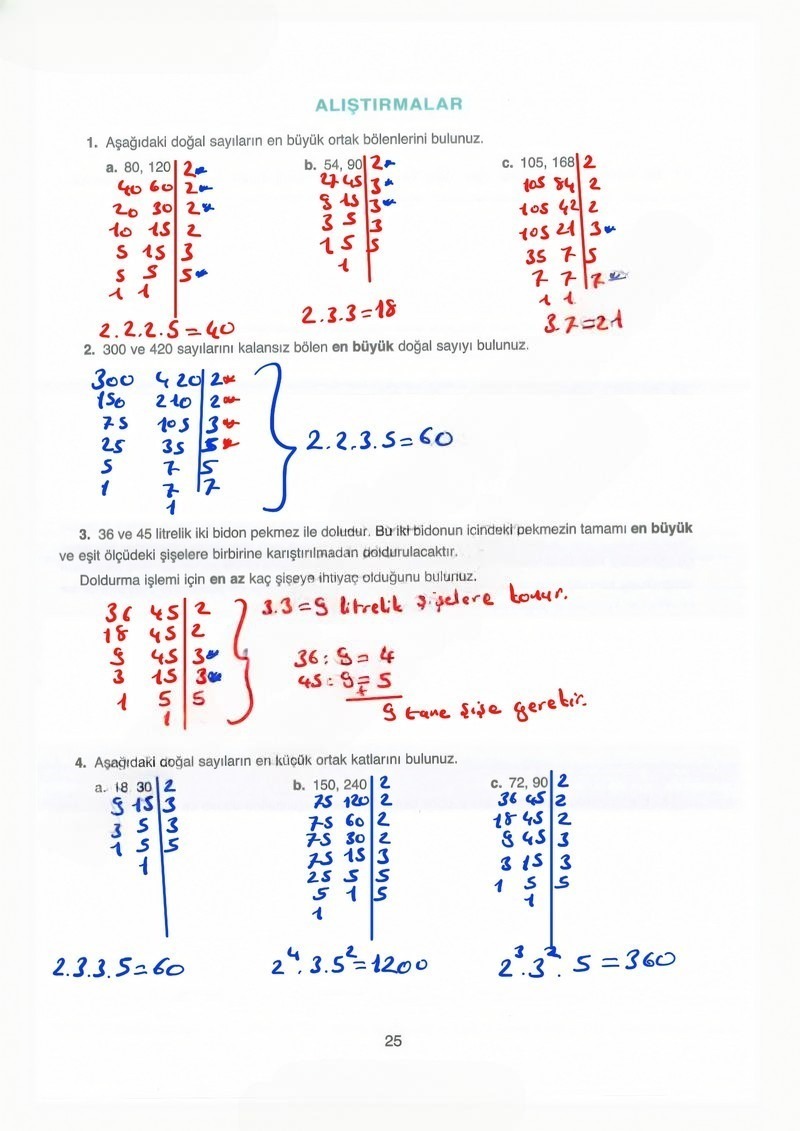 ALIŞTIRMALAR
1. Aşağıdaki doğal sayıların en büyük ortak bölenlerini bulunuz.
a. 80, 120 | 2*
40 60 | 2*
20 30 | 2*
10 15 | 2
5 15 | 3
5 5 | 5*
1 1
2.2.2.5=40
b. 54, 90 | 2*
27 45 | 3*
9 15 | 3*
3 5 | 3
1 5 | 5
1
2.3.3=18
c. 105, 168 | 2
105 84 | 2
105 42 | 2
105 21 | 3*
35 7 | 5
7 7 | 7*
1 1
3.7=21
2. 300 ve 420 sayılarını kalansız bölen en büyük doğal sayıyı bulunuz.
300 420 | 2*
150 210 | 2*
75 105 | 3*
25 35 | 5*
5 7 | 5
1 7 | 7
1
2.2.3.5=60
3. 36 ve 45 litrelik iki bidon pekmez ile doludur. Bu iki bidonun icindeki pekmezin tamamı en büyük
ve eşit ölçüdeki şişelere birbirine karıştırılmadan doldurulacaktır.
Doldurma işlemi için en az kaç şişeye ihtiyaç olduğunu bulunuz.
36 45 | 2
18 45 | 2
9 45 | 3*
3 15 | 3*
1 5 | 5
1
3.3=9 litrelik şişelere konur.
36:9=4
45:9=5
+
9 tane şişe gerekir.
4. Aşağıdaki doğal sayıların en küçük ortak katlarını bulunuz.
a. 18 30 | 2
9 15 | 3
3 5 | 3
1 5 | 5
1
2.3.3.5=60
b. 150, 240 | 2
75 120 | 2
75 60 | 2
75 30 | 2
75 15 | 3
25 5 | 5
5 1 | 5
1
2⁴.3.5²=1200
c. 72, 90 | 2
36 45 | 2
18 45 | 2
9 45 | 3
3 15 | 3
1 5 | 5
1
2³.3².5=360
25